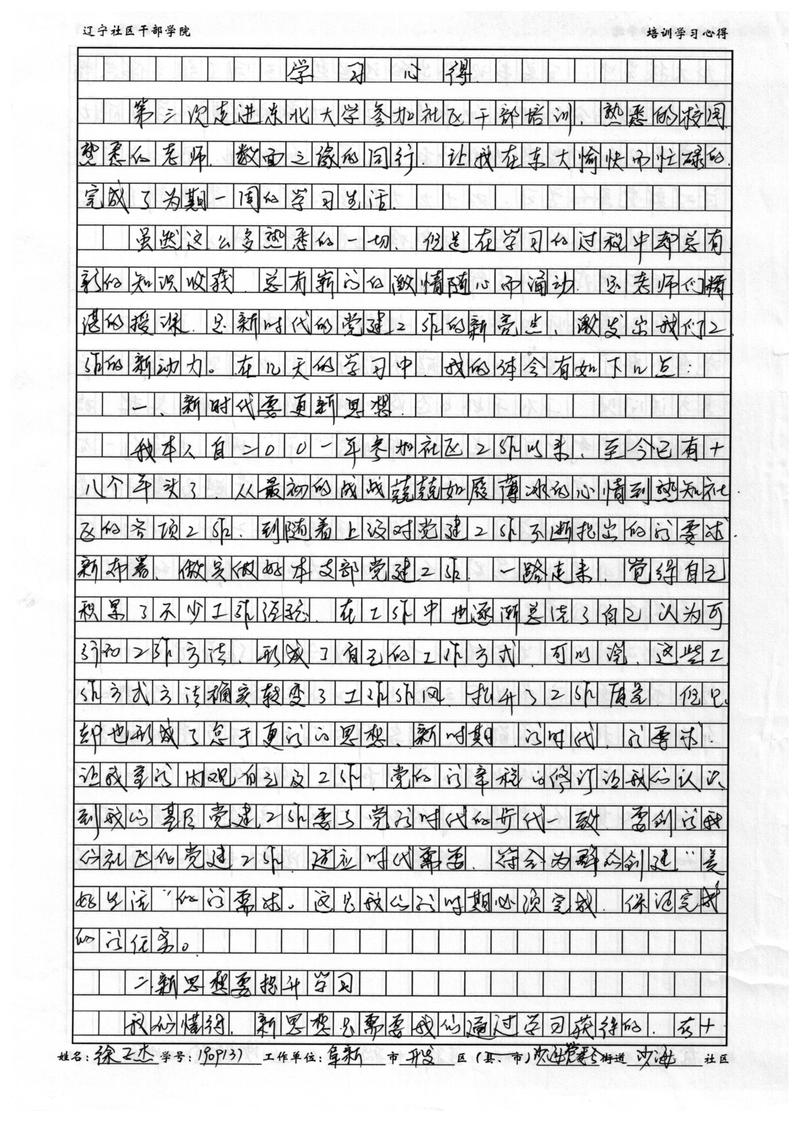 辽宁社区干部学院 培训学习心得
学习心得
第三次走进东北大学参加社区干部培训，熟悉的校园
熟悉的老师，数面之缘的同行，让我在东大愉快而忙碌的
完成了为期一周的学习生活。
虽然这么多熟悉的一切，但是在学习的过程中却总有
新的知识收获，总有新的激情随心而涌动，是老师们精
湛的授课，是新时代的党建工作的新亮点，激发出我们工
作的新动力。在几天的学习中，我的体会有如下几点：
一、新时代要更新思想
我本人自二00一年参加社区工作以来，至今已有十
八个年头了，从最初的战战兢兢如履薄冰的心情到熟知社
区的各项工作，到随着上级对党建工作不断提出的新要求
新布署，做实做好本支部党建工作。一路走来，觉得自己
积累了不少工作经验，在工作中也逐渐总结了自己认为可
行的工作方法，形成了自己的工作方式，可以说，这些工
作方式方法确实转变了工作作风，提升了工作，但是
却也形成了怠于更新的思想，新时期，新时代，新要求，
让我重新自己及工作，党的新章程的修订让我们认识
到我们基层党建工作要与党新时代的步伐一致，要创新我
们社区的党建工作，适应时代需要，符合为群众创建“美
好生活”的新要求。这是我们新时期必须完成，保证完成
的新任务。
二、新思想要提升学习
我们懂得，新思想是需要我们通过学习获得的，在十
姓名： 学号：1909137 工作单位：阜新 市 开发 区（县、市） 街道 沙海 社区